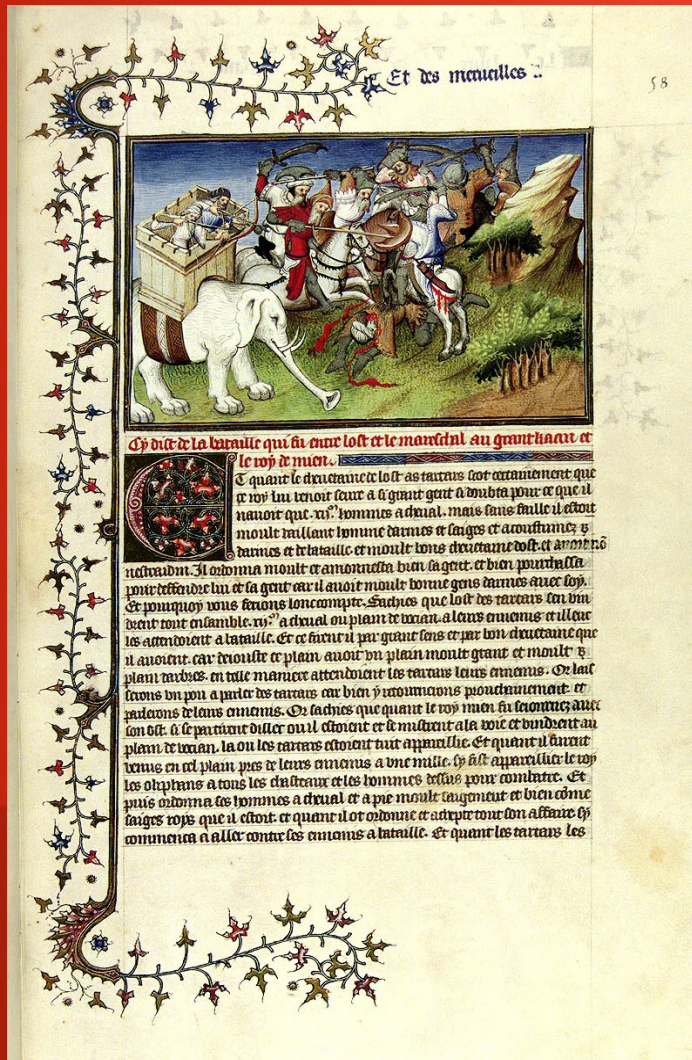 Et des merueilles
58
Cy dist de la bataille qui fu entre lost et le mareschal au grant kaan et
le roy de mien.
Et quant le cheuetaine de lost as tartars scot certainement que
ce roy lui venoit seure a si grant gent si doubta pour ce que il
nauoit que .xij.m hommes a cheual. mais sans faille il estoit
moult vaillant homme darmes et saiges et acoustumez
darmes et de bataille et moult bons cheuetaine dost. et
nestraidin. Il ordonna moult et amonnesta bien sa gent. et bien pourchassa
pour deffendre lui et sa gent car il auoit moult bonne gens darmes auec soy.
Et pourquoy vous ferons lonc compte. Sachies que lost des tartars sen vin
drent tout ensamble .xij.m a cheual ou plain de vocian. a leurs ennemis et illeuc
les attendoient a bataille. Et ce firent il par grant sens et par bon cheuetaine que
il auoient. car deiouste ce plain auoit vn plain moult grant et moult
plain darbres. en telle maniere attendoient les tartars leurs ennemis. Or lais
serons vn pou a parler des tartars car bien y retournerons prouchainement. et
parlerons de leurs ennemis. Or sachies que quant le roy mien fu seiournez auec
son ost. si se partirent dillec ou il estoient et se mistrent a la voie et vindrent au
plain de vocian. la ou les tartars estoient tuit appareillie. Et quant il furent
venus en cel plain pres de leurs ennemis a vne mille. sy fist appareillier le roy
les oliphans a tous les chasteaux et les hommes dessus pour combatre. Et
puis ordonna ses hommes a cheual et a pie moult saigement et bien cõme
saiges roys que il estoit. et quant il ot ordonne et tout son affaire. sy
commenca a aller contre ses ennemis a bataille. Et quant les tartars les